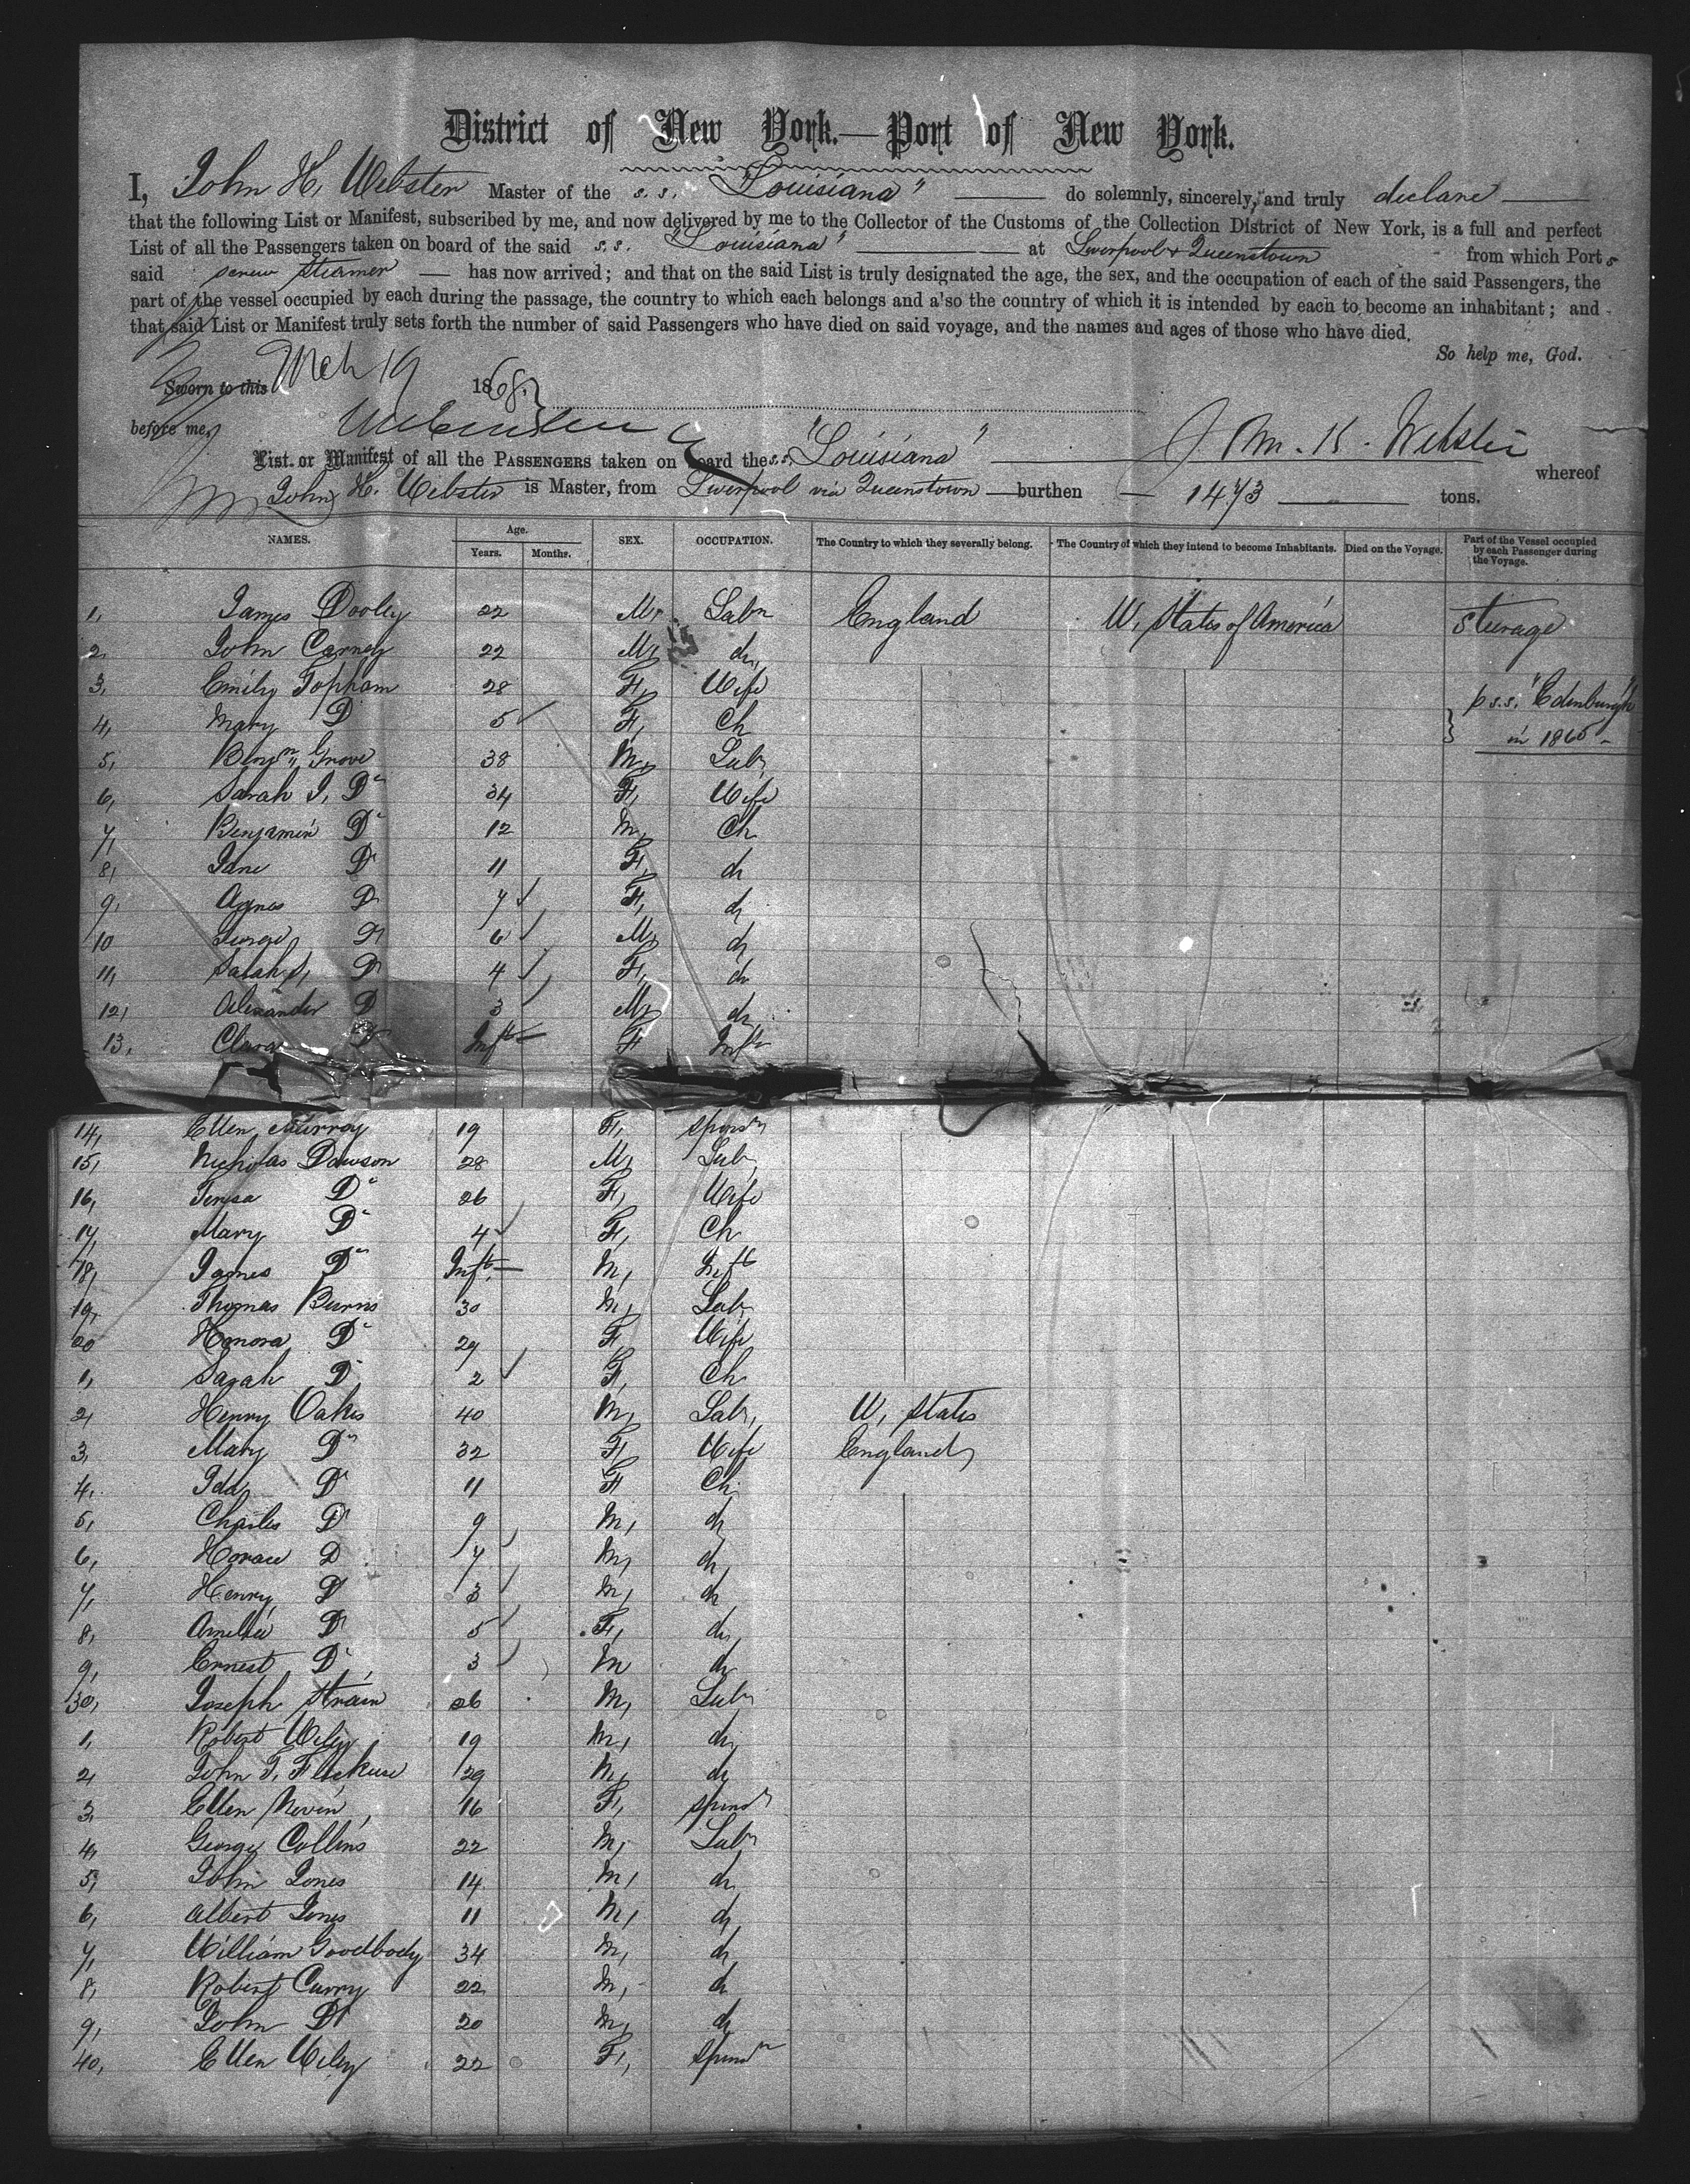 District of New York.—Port of New York.
I, John H. Webster Master of the s.s. "Louisiana" do solemnly, sincerely, and truly declare
that the following List or Manifest, subscribed by me, and now delivered by me to the Collector of the Customs of the Collection District of New York, is a full and perfect
List of all the Passengers taken on board of the said s.s. "Louisiana" at Liverpool & Queenstown from which Ports
said screw steamer has now arrived; and that on the said List is truly designated the age, the sex, and the occupation of each of the said Passengers, the
part of the vessel occupied by each during the passage, the country to which each belongs and also the country of which it is intended by each to become an inhabitant; and
that said List or Manifest truly sets forth the number of said Passengers who have died on said voyage, and the names and ages of those who have died.
So help me, God.
Sworn to this Mch 19 1868
before me,
List or Manifest of all the PASSENGERS taken on board the s.s. "Louisiana" whereof
John H. Webster is Master, from Liverpool via Queenstown burthen 1473 tons.
NAMES. Age. Years. Months. SEX. OCCUPATION. The Country to which they severally belong. The Country of which they intend to become Inhabitants. Died on the Voyage. Part of the Vessel occupied by each Passenger during the Voyage.
1, James Dooley 22 M, Labr England U, States of America Steerage
2, John Carney 22 M, do,
3, Emily Topham 28 F, Wife p s.s. "Edenburgh"
4, Mary Do 5 F, Ch in 1865
5, Benjn Grove 38 M, Labr
6, Sarah J, Do 34 F, Wife
7, Benjamin Do 12 M, Ch
8, Jane Do 11 F, do
9, Agnes Do 7 F, do
10 George Do 6 M, do
11, Sarah J, Do 4 F, do
12, Alexander Do 3 M, do
13, Clara Do Inft F Inft
14, Ellen Murray 19 F, Spinstr
15, Nicholas Dawson 28 M, Labr
16, Teresa Do 26 F, Wife
17, Mary Do 4 F, Ch
18, James Do Inft M, Inft
19, Thomas Burns 30 M, Labr
20 Honora Do 29 F, Wife
1, Sarah Do 2 F, Ch
2, Henry Oakes 40 M, Labr, U, States
3, Mary Do 32 F Wife England
4, Ida Do 11 F Ch
5, Charles Do 9 M, do
6, Horace Do 7 M, do
7, Henry Do 3 M, do
8, Amelia Do 5 F, do
9, Ernest Do 3 M do
30, Joseph Strain 26 M, Labr
1, Robert Wiley 19 M, do
2, John T, 29 M, do
3, Ellen Nevin 16 F, Spinstr
4, George Collins 22 M, Labr
5, John Jones 14 M, do
6, Albert Jones 11 M, do
7, William Goodbody 34 M, do
8, Robert Curry 22 M, do
9, John Do 20 M, do
40, Ellen Wiley 22 F, Spinstr